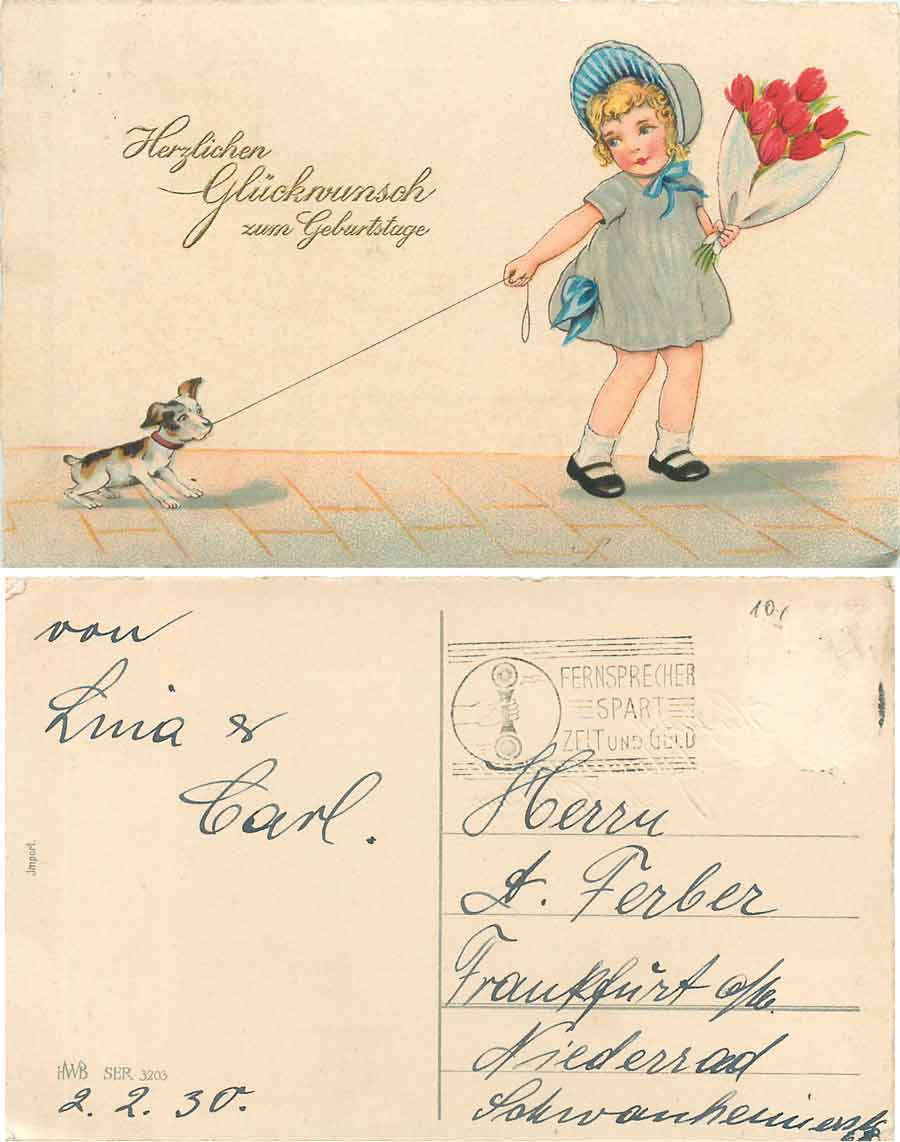 Herzlichen
Glückwunsch
zum Geburtstage
von
Lina &
Carl.
Import.
HWB SER. 3203
2. 2. 30.
10.
FERNSPRECHER
SPART
ZEIT UND GELD
Herrn
A. Ferber
Frankfurt a/M.
Niederrad
Schwanheimerstr